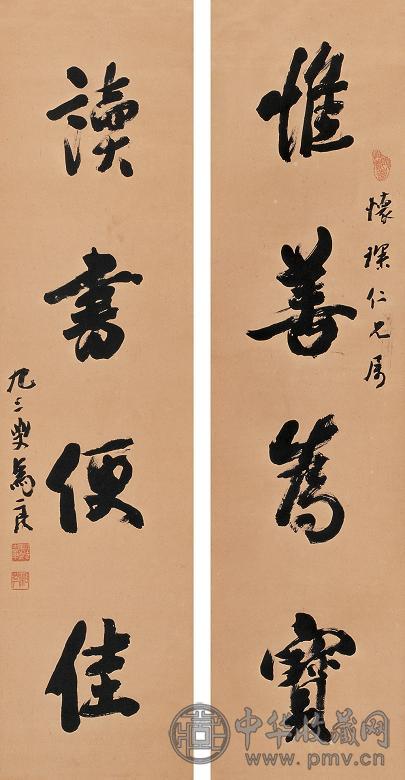 懷琛仁兄屬
惟善為寶
讀書便佳
九三叟馬良
中华收藏网
www.pmv.cn